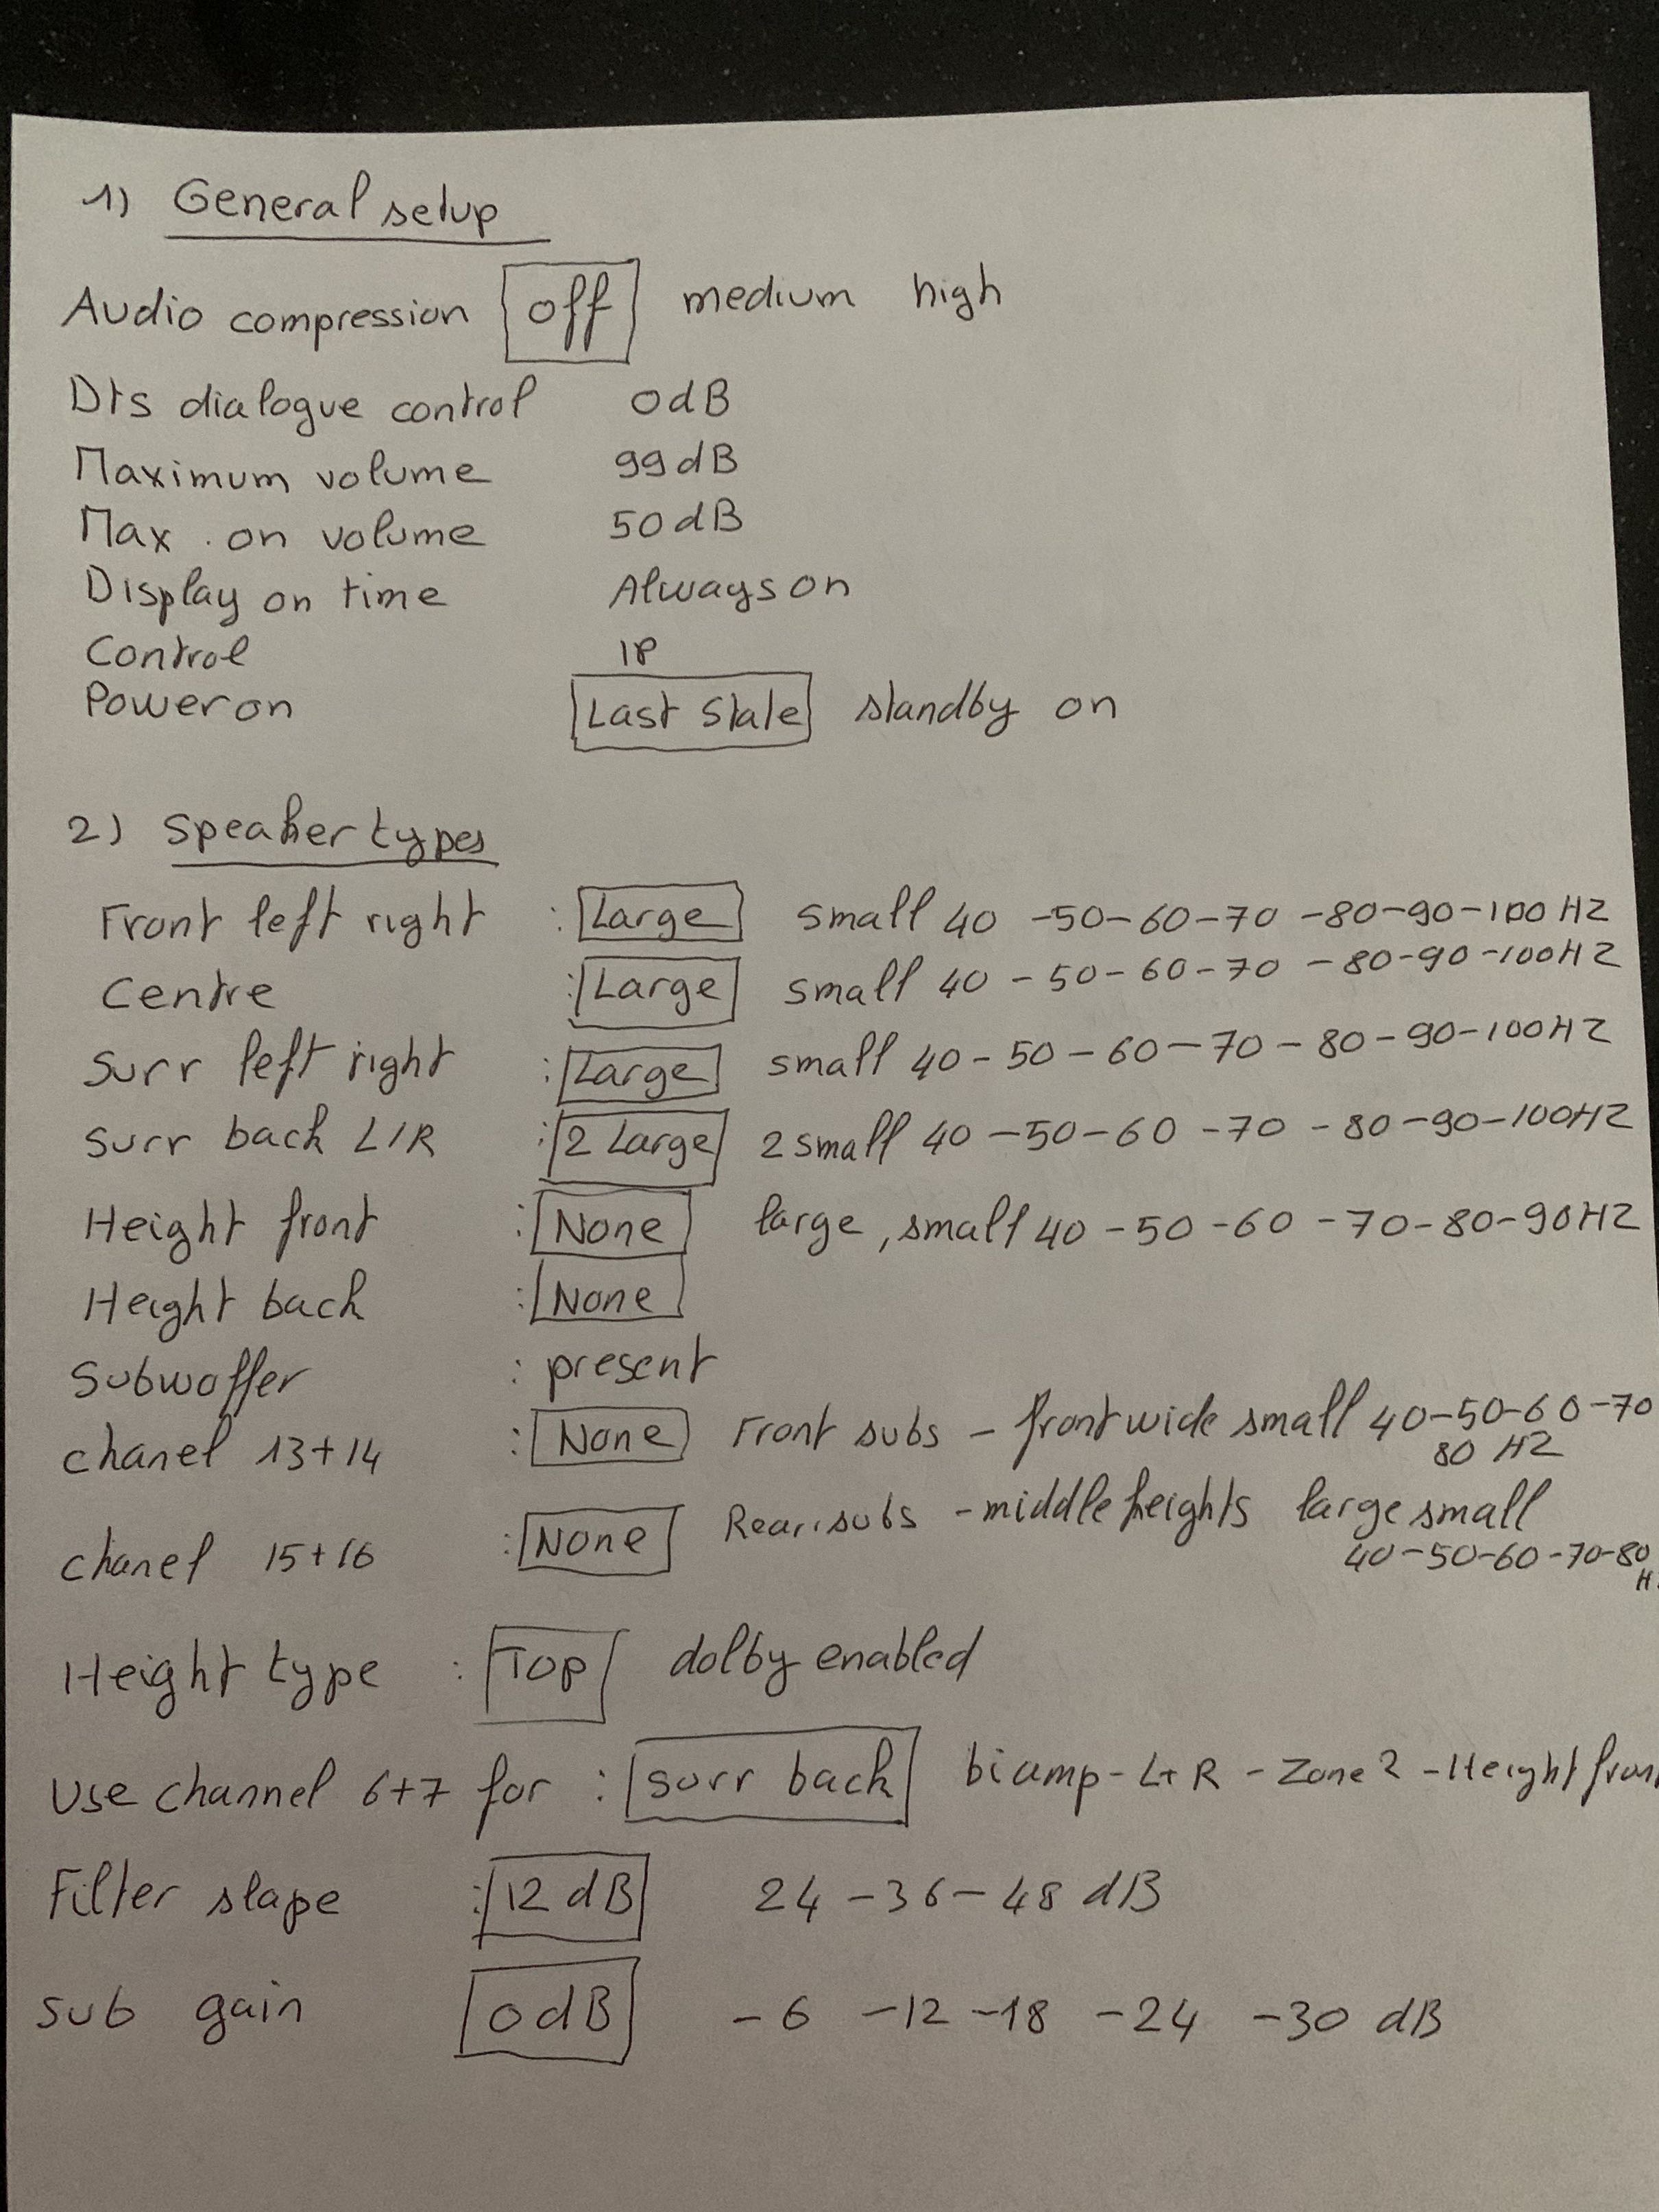 1) General setup
Audio compression off medium high
Dts dialogue control 0dB
Maximum volume 99dB
Max. on volume 50dB
Display on time Always on
Control IP
Power on Last State standby on
2) Speaker types
Front left right : Large small 40 -50-60-70 -80-90-100 HZ
Centre : Large small 40 -50-60-70 -80-90-100HZ
Surr left right : Large small 40-50-60-70-80-90-100HZ
Surr back L/R : 2 Large 2 small 40 -50-60 -70 -80-90-100HZ
Height front : None large, small 40 -50 -60 -70-80-90HZ
Height back : None
Subwoffer : present
chanel 13+14 : None Front subs - front wide small 40-50-60-70
80 HZ
chanel 15+16 : None Rear subs - middle heights large small
40-50-60-70-80
H
Height type : Top dolby enabled
Use channel 6+7 for : surr back biamp- L+R - Zone 2 - Height fron
Filter slape : 12 dB 24 -36- 48 dB
sub gain 0dB -6 -12 -18 -24 -30 dB